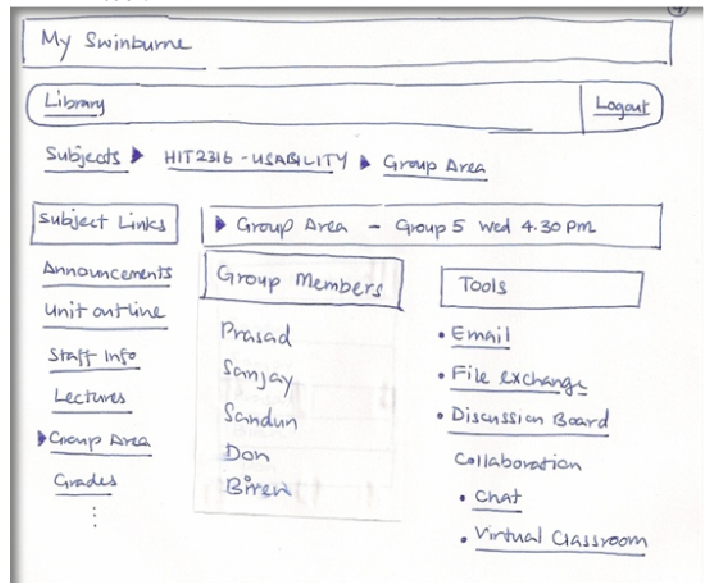 4
My Swinburne
Library
Logout
Subjects ▶ HIT2316 - USABILITY ▶ Group Area
Subject Links
▶ Group Area - Group 5 Wed 4.30 pm
Announcements
Unit outline
Staff Info
Lectures
▶ Group Area
Grades
⋮
Group Members
Prasad
Sanjay
Sandun
Don
Biren
Tools
• Email
• File exchange
• Discussion Board
Collaboration
• Chat
• Virtual Classroom